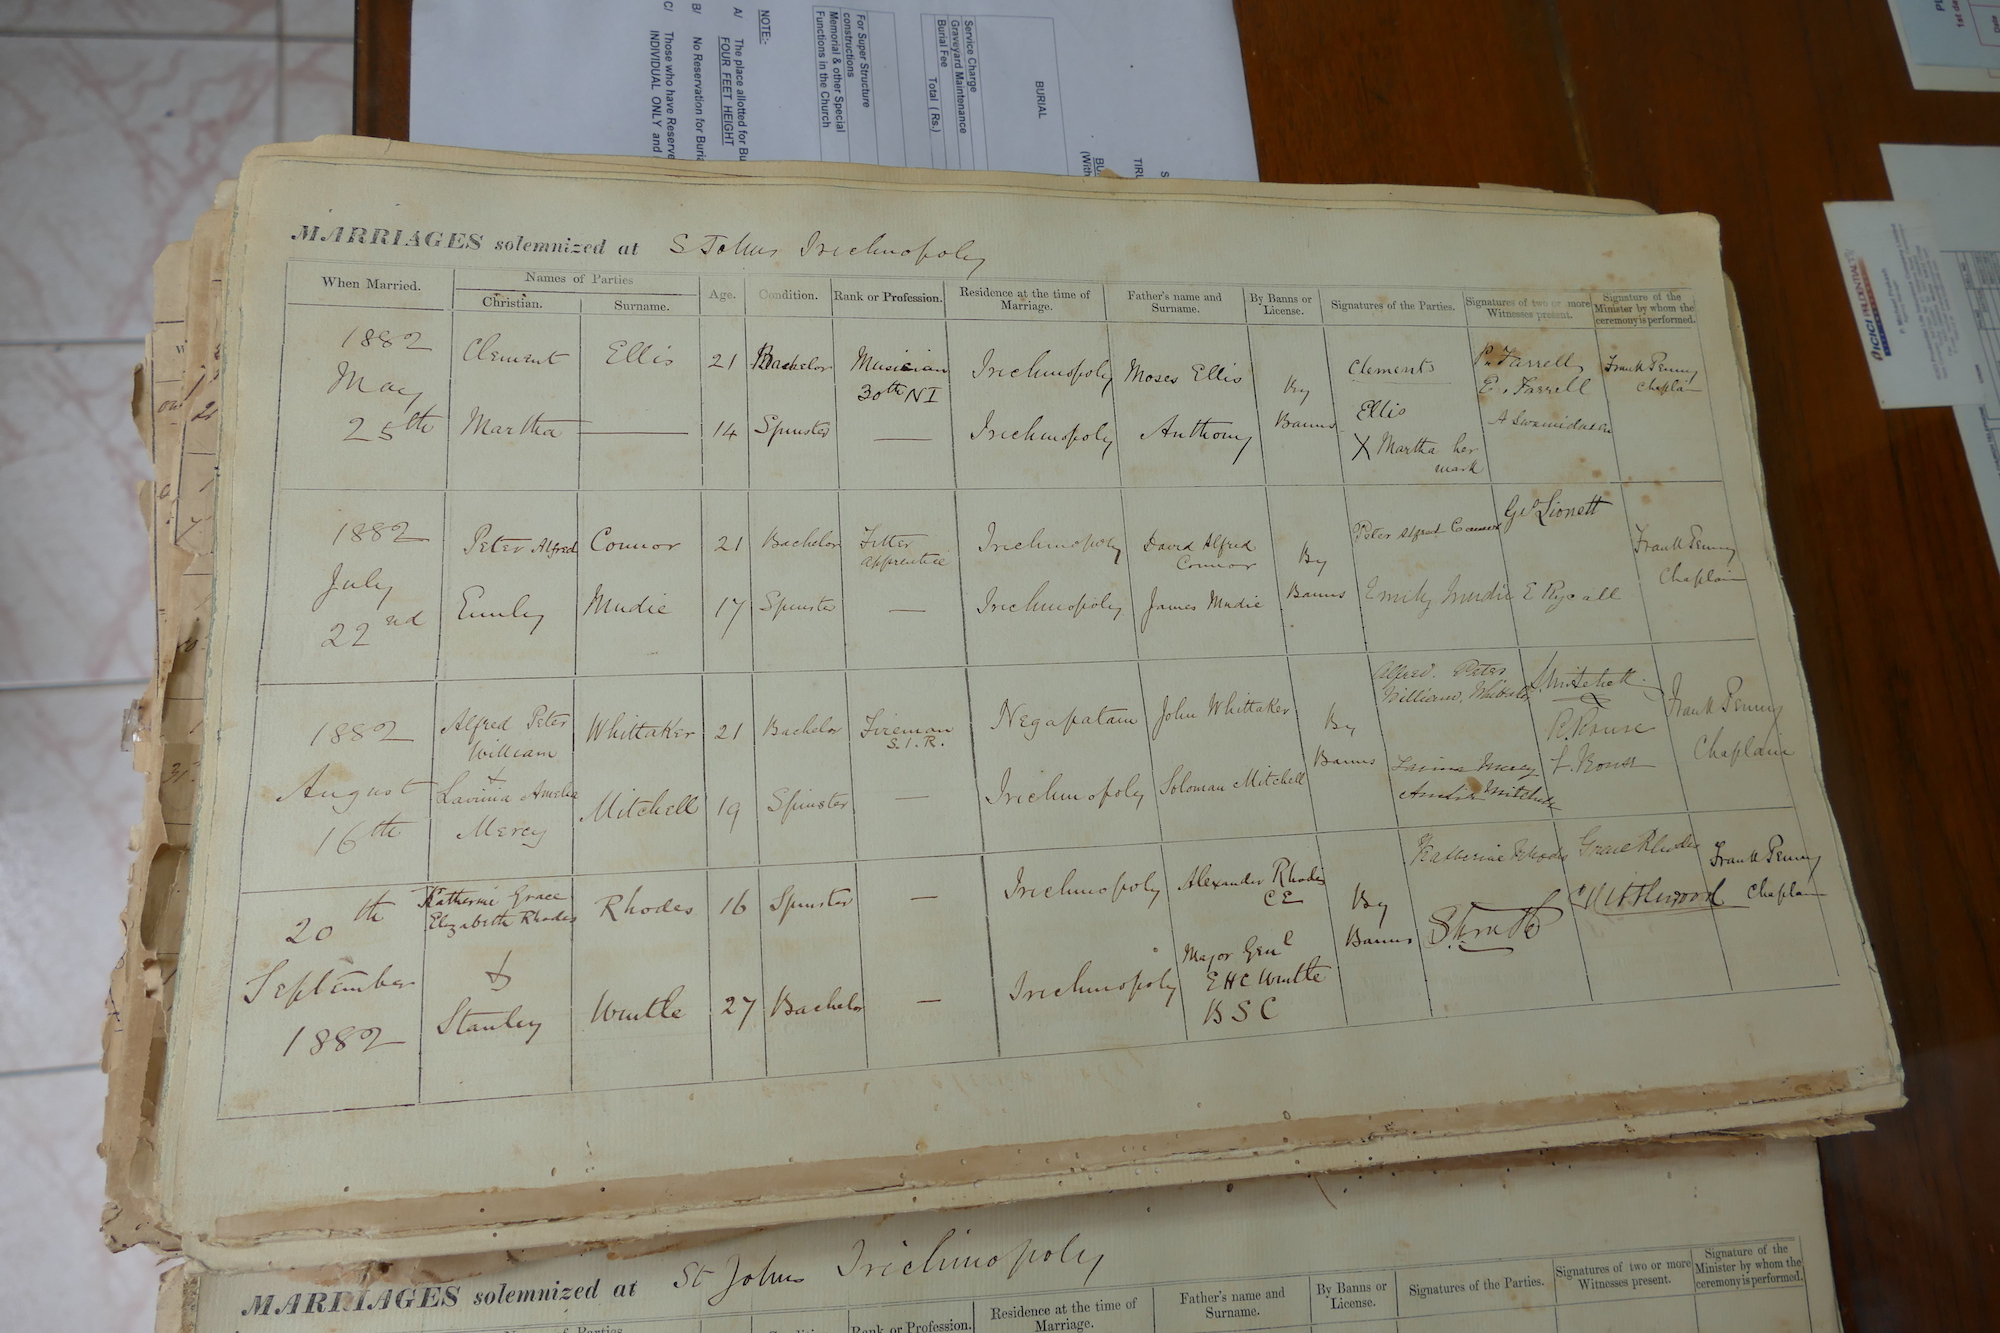 BURIAL
Service Charge
Graveyard Maintenance
Burial Fee
Total (Rs.)
For Super Structure
constructions
Memorial & other Special
Functions in the Church
NOTE:-
A/ The place allotted for Bu
FOUR FEET HEIGHT
B/ No Reservation for Buria
C/ Those who have Reserve
INDIVIDUAL ONLY and
ICICI PRUDENTIAL
MARRIAGES solemnized at St Johns Trichinopoly
When Married.
Names of Parties
Christian.
Surname.
Age.
Condition.
Rank or Profession.
Residence at the time of
Marriage.
Father's name and
Surname.
By Banns or
License.
Signatures of the Parties.
Signatures of two or more
Witnesses present.
Signature of the
Minister by whom the
ceremony is performed.
1882
May
25th
Clement Ellis 21 Bachelor Musician
30th NI
Trichinopoly Moses Ellis
Martha — 14 Spinster — Trichinopoly Anthony
By
Banns
Clements
Ellis
X Martha her
mark
P. Farrell
E. Farrell
A Swamidasen
Frank Penny
Chaplain
1882
July
22nd
Peter Alfred Connor 21 Bachelor Fitter
apprentice
Trichinopoly David Alfred
Connor
Emily Mudie 17 Spinster — Trichinopoly James Mudie
By
Banns
Peter Alfred Connor
Emily Mudie
Geo Lionett
E Rycall
Frank Penny
Chaplain
1882
August
16th
Alfred Peter
William
Whittaker 21 Bachelor Fireman
S.I.R.
Negapatam John Whittaker
+
Lavinia Amelia
Mercy
Mitchell 19 Spinster — Trichinopoly Soloman Mitchell
By
Banns
Alfred Peter
William
Lavinia Mercy
Amelia Mitchell
S. Mitchell
R. Rouse
F. Rouse
Frank Penny
Chaplain
20th
September
1882
Katherine Grace
Elizabeth Rhodes
Rhodes 16 Spinster — Trichinopoly Alexander Rhodes
CE
&
Stanley Wintle 27 Bachelor — Trichinopoly
Major Genl
E H C Wintle
B S C
By
Banns
Katherine Rhodes
Grace Rhodes
Frank Penny
Chaplain
MARRIAGES solemnized at St Johns Trichinopoly
Names of Parties
Rank or Profession.
Residence at the time of
Marriage.
Father's name and
Surname.
By Banns or
License.
Signatures of the Parties.
Signatures of two or more
Witnesses present.
Signature of the
Minister by whom the
ceremony is performed.